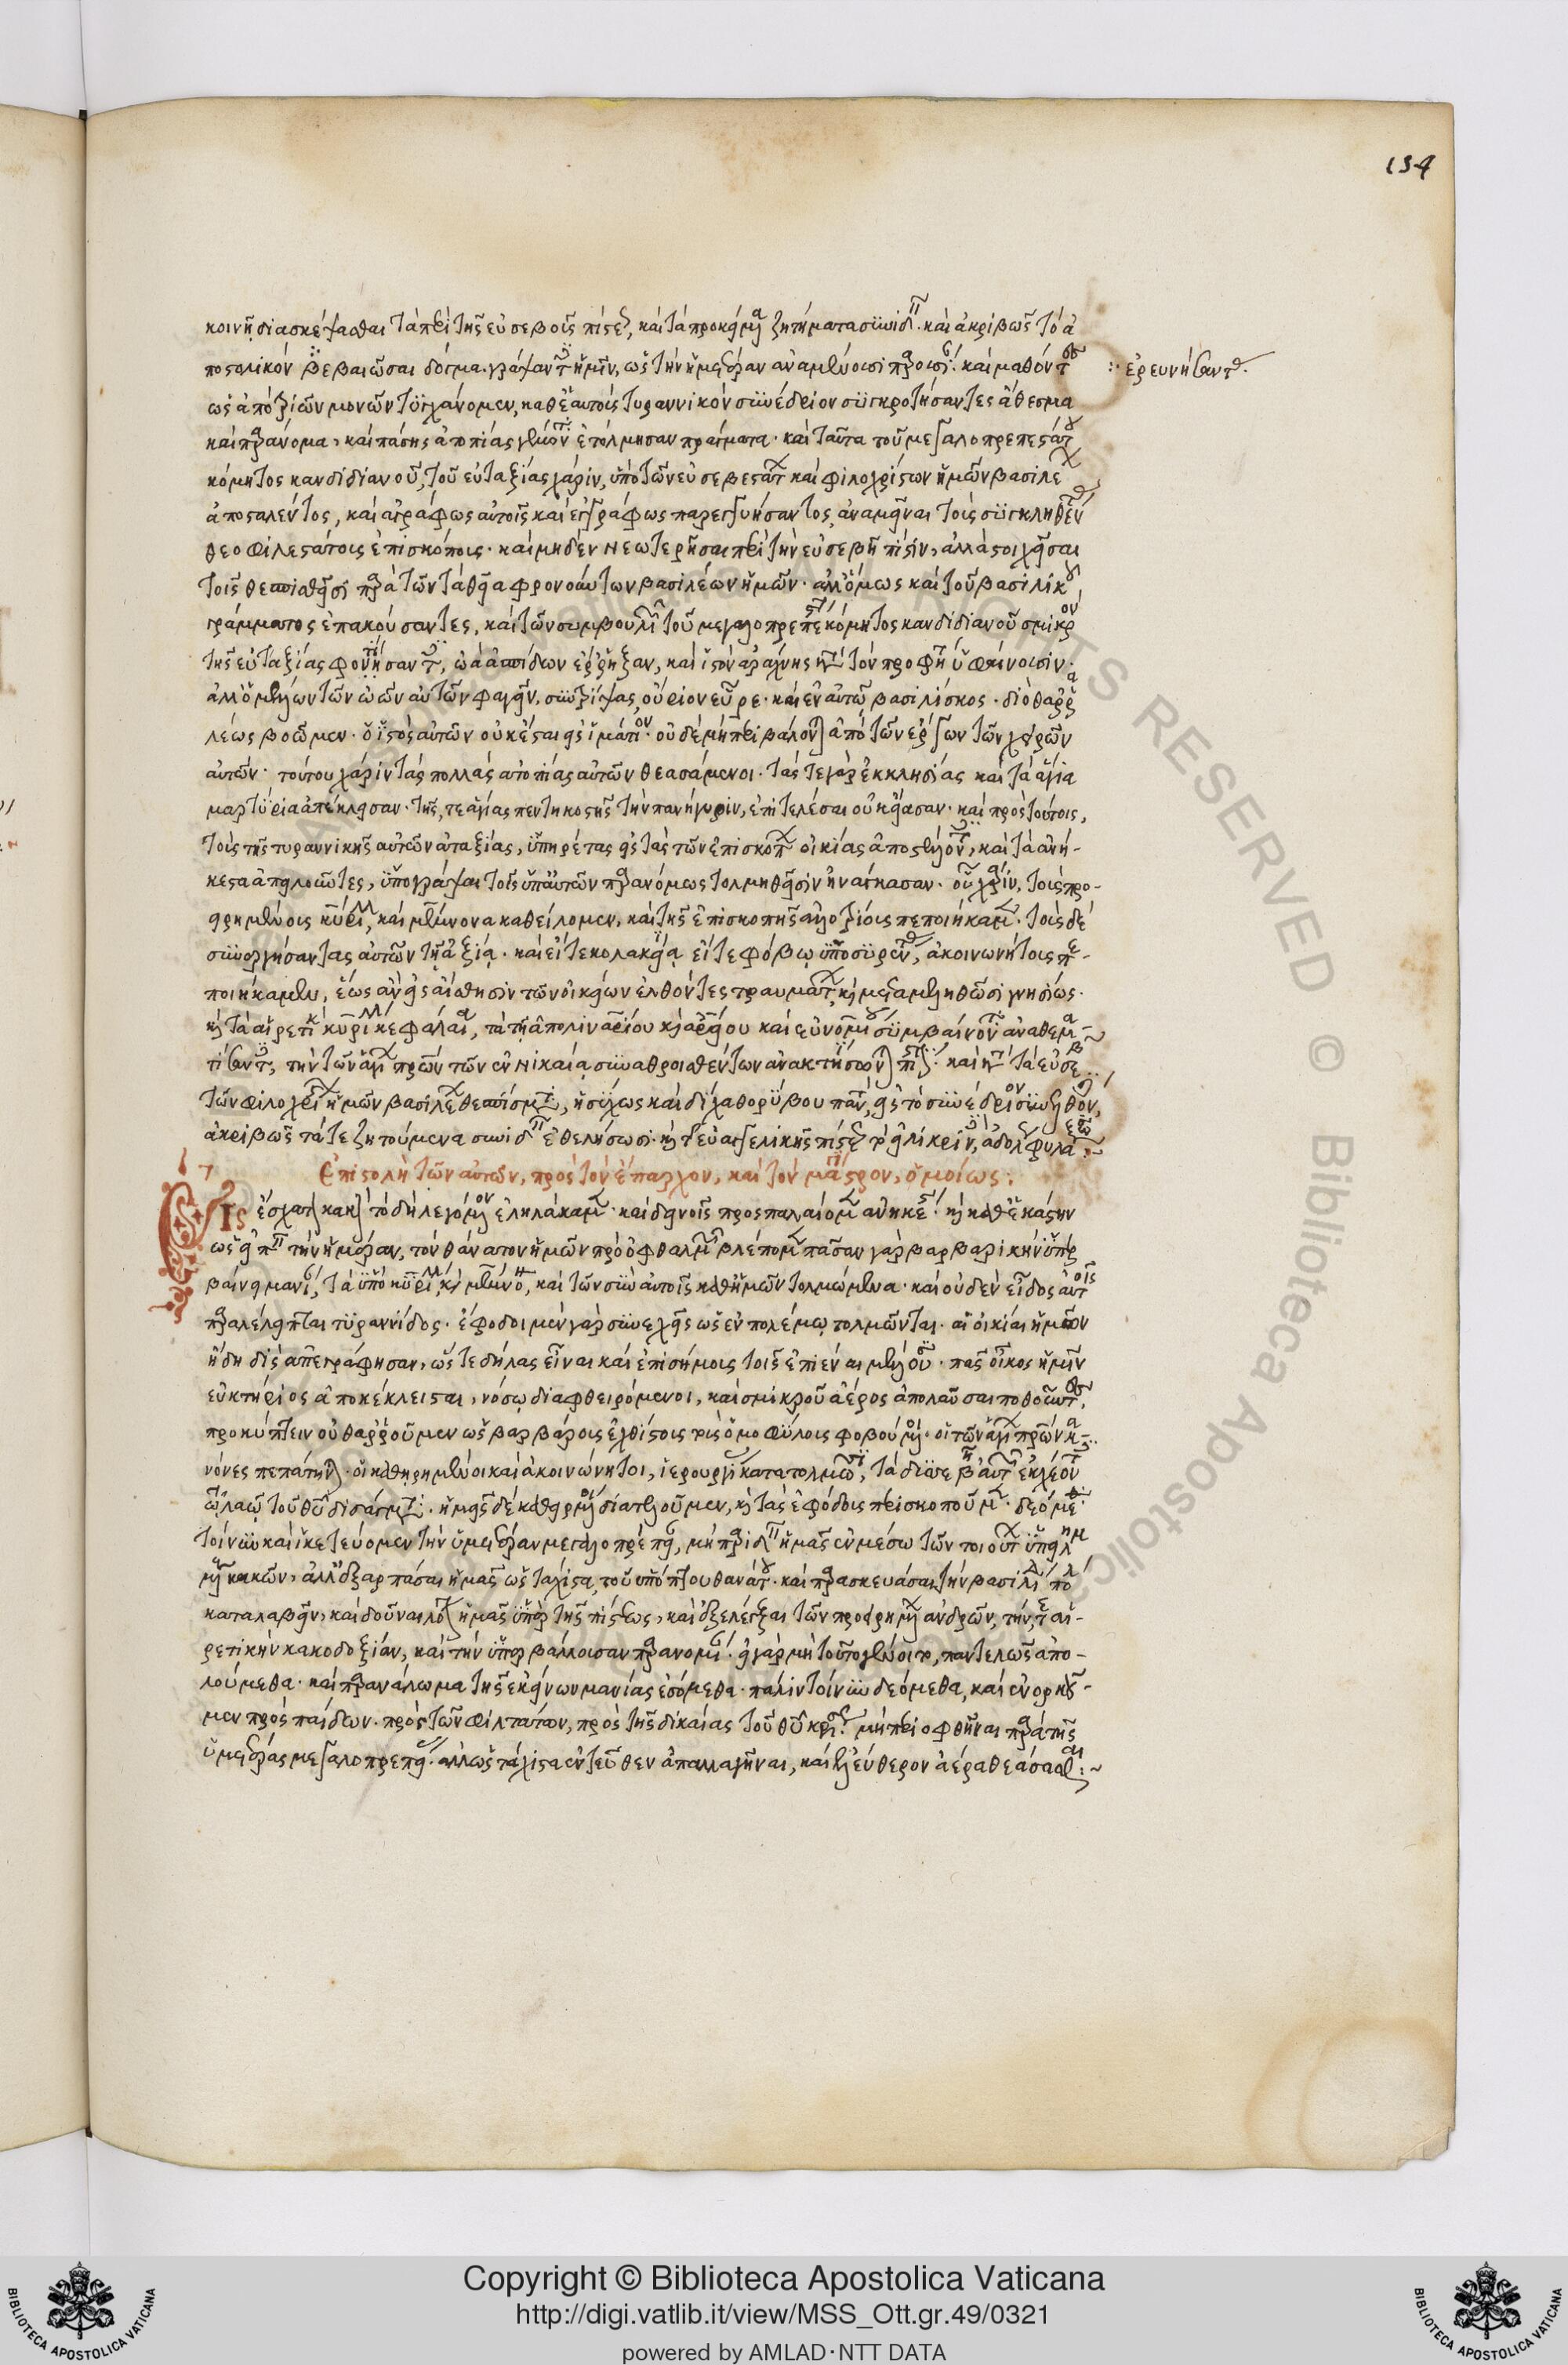 134
κοινῇ διασκέψασθαι τὰ περὶ τῆς εὐσεβοῦς πίστεως, καὶ τὰ προκείμενα ζητήματα συνιδεῖν. καὶ ἀκριβῶς τὸ ἀ
ποστολικὸν βεβαιῶσαι δόγμα. γράψαντες ἡμῖν, ὡς τὴν ἡμετέραν ἀναμένωσι παρουσίαν. καὶ μαθόντες
:· ἐρευνήσαντες
ὡς ἀπὸ τριῶν μονῶν τυγχάνομεν, καθ' ἑαυτοὺς τυραννικὸν συνέδριον συγκροτήσαντες ἄθεσμα
καὶ παράνομα, καὶ πάσης ἀτοπίας γέμοντα ἐτόλμησαν πράγματα. καὶ ταῦτα τοῦ μεγαλοπρεπεστάτου
κόμητος κανδιδιανοῦ, τοῦ εὐταξίας χάριν, ὑπὸ τῶν εὐσεβεστάτων καὶ φιλοχρίστων ἡμῶν βασιλέων
ἀποσταλέντος, καὶ ἀγράφως αὐτοῖς καὶ ἐγγράφως παρεγγυήσαντος ἀναμεῖναι τοὺς συγκληθέντας
θεοφιλεστάτους ἐπισκόπους. καὶ μηδὲν νεωτερῆσαι περὶ τὴν εὐσεβῆ πίστιν, ἀλλὰ στοιχῆσαι
τοῖς θεσπισθεῖσι παρὰ τῶν τὰ θεῖα φρονούντων βασιλέων ἡμῶν. ἀλλ' ὅμως καὶ τοῦ βασιλικοῦ
γράμματος ἐπακούσαντες, καὶ τῶν συμβουλιῶν τοῦ μεγαλοπρεπεστάτου κόμητος κανδιδιανοῦ σμικρὸν
τῆς εὐταξίας φροντίσαντες, ὠὰ ἀσπίδων ἔρρηξαν, καὶ ἱστὸν ἀράχνης κατὰ τὸν προφήτην ὑφαίνουσιν.
ἀλλ' ὁ μέλλων τῶν ὠῶν αὐτῶν φαγεῖν, συντρίψας, οὔριον εὗρε. καὶ ἐν αὐτῷ βασιλίσκος. διὸ θαρρα
λέως βοῶμεν. ὁ ἱστὸς αὐτῶν οὐκ ἔσται εἰς ἱμάτιον. οὐδὲ μὴ περιβάλονται ἀπὸ τῶν ἔργων τῶν χειρῶν
αὐτῶν. τούτου χάριν τὰς πολλὰς ἀτοπίας αὐτῶν θεασάμενοι. τάς τε γὰρ ἐκκλησίας καὶ τὰ ἅγια
μαρτύρια ἀπέκλεισαν. τῆς, τε ἁγίας πεντηκοστῆς τὴν πανήγυριν, ἐπιτελέσαι οὐκ εἴασαν. καὶ πρὸς τούτοις,
τοὺς τῆς τυραννικῆς αὐτῶν ἀταξίας, ὑπηρέτας εἰς τὰς τῶν ἐπισκόπων οἰκίας ἀποστέλλοντες, καὶ τὰ ἀνή-
κεστα ἀπειλοῦντες, ὑπογράψαι τοῖς ὑπ' αὐτῶν παρανόμως τολμηθεῖσιν ἠνάγκασαν. οὗ χάριν, τοὺς προ-
ειρημένους κύριλλον, καὶ μέμνονα καθείλομεν, καὶ τῆς ἐπισκοπῆς ἀλλοτρίους πεποιήκαμεν. τοὺς δὲ
συνεργήσαντας αὐτῶν τῇ ἀταξίᾳ. καὶ εἴτε κολακείᾳ εἴτε φόβῳ ὑποσυρέντας, ἀκοινωνήτους πε-
ποιήκαμεν, ἕως ἂν εἰς αἴσθησιν τῶν οἰκείων ἐλθόντες τραυμάτων καὶ μεταμεληθῶσι γνησίως.
καὶ τὰ αἱρετικὰ κυρίλλου κεφάλαια, τὰ τῇ ἀπολιναρίου καὶ ἀρείου καὶ εὐνομίου συμβαίνοντα ἀναθεμα-
τίσαντες, τὴν τῶν ἁγίων πατέρων τῶν ἐν νικαίᾳ συναθροισθέντων ἀνακτήσονται πίστιν. καὶ κατὰ τὰ εὐσεβῆ
τῶν φιλοχρίστων ἡμῶν βασιλέων θεσπίσματα, ἡσύχως καὶ δίχα θορύβου παντὸς, εἰς τὸ συνέδριον συνελθόντες,
ἀκριβῶς τά τε ζητούμενα συνιδεῖν ἐθελήσωσι. καὶ τῆς εὐαγγελικῆς πίστεως τὸ εἰλικρινὲς, ἄδολον φυλάξαι:~
Ἐπιστολὴ τῶν αὐτῶν, πρὸς τὸν ἔπαρχον, καὶ τὸν μάγιστρον, ὁμοίως:
Εἰς ἔσχατα κακῶν τὸ δὴ λεγόμενον ἐληλάκαμεν. καὶ δεινοῖς προσπαλαίομεν ἀνηκέστοις. καὶ καθ' ἑκάστην
ὡς εἰπεῖν τὴν ἡμέραν, τὸν θάνατον ἡμῶν πρὸ ὀφθαλμῶν βλέπομεν. πᾶσαν γὰρ βαρβαρικὴν ὑπερ
βαίνει μανίαν, τὰ ὑπὸ κυρίλλου, καὶ μέμνονος, καὶ τῶν σὺν αὐτοῖς καθ' ἡμῶν τολμώμενα. καὶ οὐδὲν εἶδος αὐτοῖς
παραλέλειπται τυραννίδος. ἔφοδοι μὲν γὰρ συνεχεῖς ὡς ἐν πολέμῳ τολμῶνται. αἱ οἰκίαι ἡμῶν
ἤδη δὶς ἀπεγράφησαν, ὥστε δήλας εἶναι καὶ ἐπισήμους τοῖς ἐπιέναι μέλλουσι. πᾶς οἶκος ἡμῖν
εὐκτήριος ἀποκέκλεισται, νόσῳ διαφθειρόμενοι, καὶ σμικροῦ ἀέρος ἀπολαῦσαι ποθοῦντες,
προκύπτειν οὐ θαρροῦμεν ὡς βαρβάρους ἐχθίστους τοὺς ὁμοφύλους φοβούμενοι. οἱ τῶν ἁγίων πατέρων κα-
νόνες πεπάτηνται. οἱ καθῃρημένοι καὶ ἀκοινώνητοι, ἱερουργεῖν κατατολμῶσι, τὰ
τῷ λαῷ τοῦ θυ διδάγματα. ἡμεῖς δὲ καθειργμένοι διατελοῦμεν, καὶ τὰς ἐφόδους περισκοποῦμεν. δεόμεθα
τοίνυν καὶ ἱκετεύομεν τὴν ὑμετέραν μεγαλοπρέπειαν, μὴ παριδεῖν ἡμᾶς ἐν μέσῳ τῶν τοιούτων ὑπειλημ
μένους κακῶν, ἀλλ' ἐξαρπάσαι ἡμᾶς ὡς τάχιστα, τοῦ ὑπόπτου θανάτου. καὶ παρασκευάσαι, τὴν βασιλίδα πόλιν
καταλαβεῖν, καὶ δοῦναι λόγον ἡμᾶς ὑπὲρ τῆς πίστεως, καὶ ἐξελέγξαι τῶν προειρημένων ἀνδρῶν, τήν, τε αἱ-
ρετικὴν κακοδοξίαν, καὶ τὴν ὑπερβάλλουσαν παρανομίαν. εἰ γὰρ μὴ τοῦτο γένοιτο, παντελῶς ἀπο-
λούμεθα. καὶ παρανάλωμα τῆς ἐκείνων μανίας ἐσόμεθα. πάλιν τοίνυν δεόμεθα, καὶ ἐνορκοῦ-
μεν πρὸς παίδων. πρὸς τῶν φιλτάτων, πρὸς τῆς δικαίας τοῦ θυ κρίσεως. μὴ περιοφθῆναι παρὰ τῆς
ὑμετέρας μεγαλοπρεπείας. ἀλλ' ὡς τάχιστα ἐντεῦθεν ἀπαλλαγῆναι, καὶ ἐλεύθερον ἀέρα θεάσασθαι:~
Copyright © Biblioteca Apostolica Vaticana
http://digi.vatlib.it/view/MSS_Ott.gr.49/0321
powered by AMLAD·NTT DATA
BIBLIOTECA APOSTOLICA VATICANA
BIBLIOTECA APOSTOLICA VATICANA